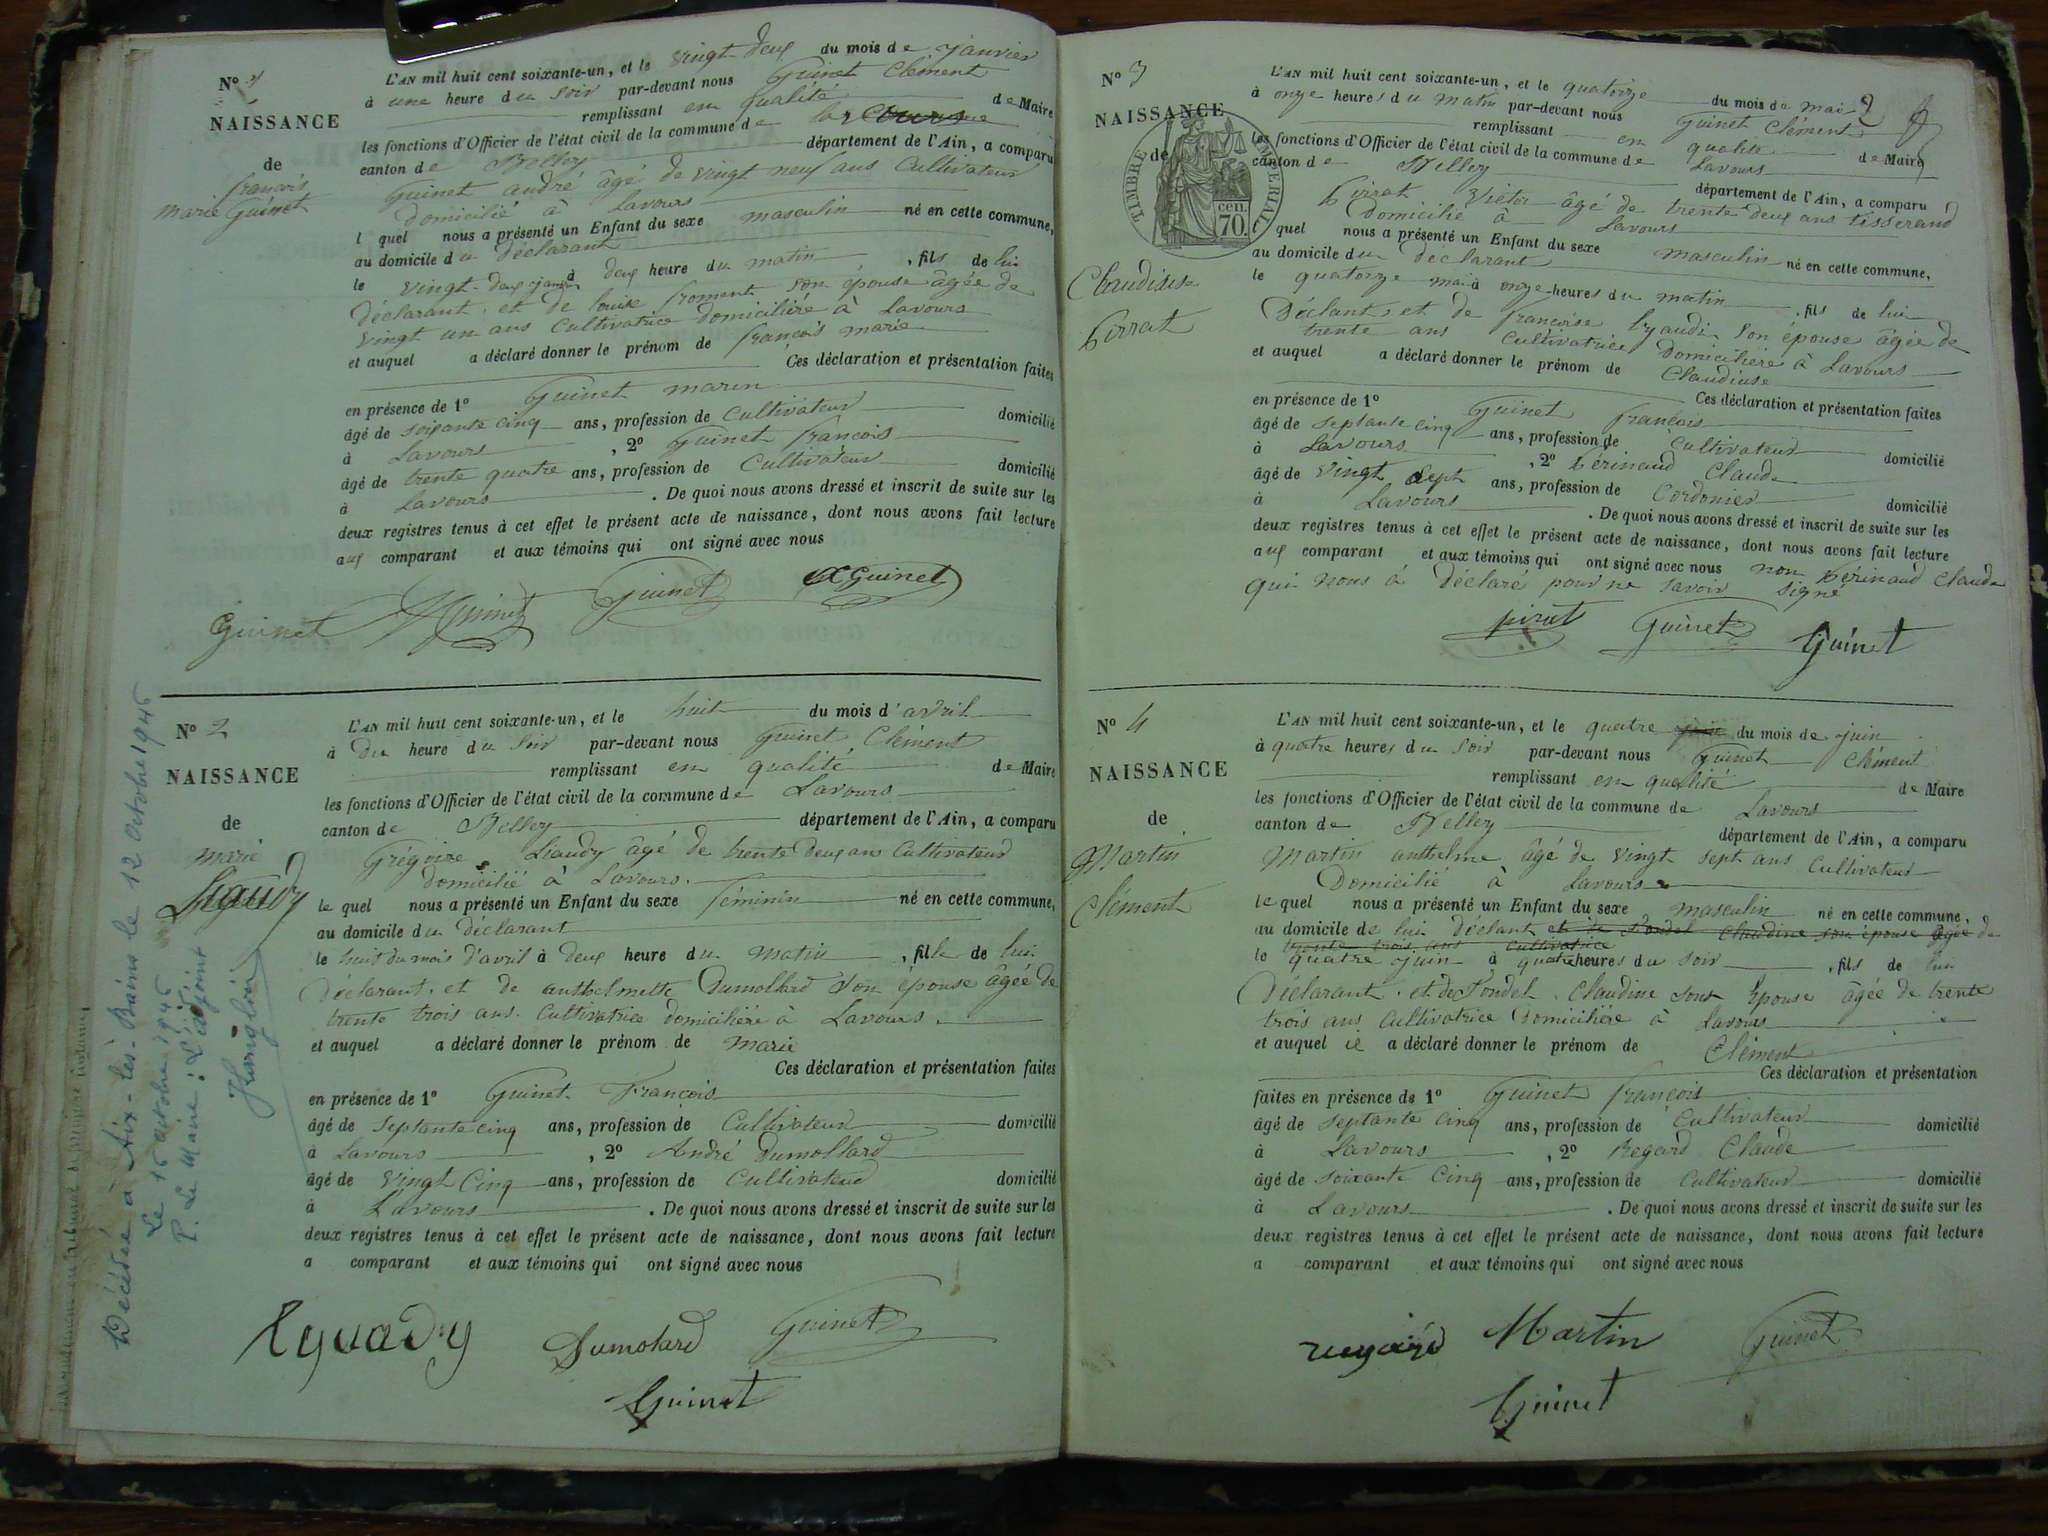 N° 1
NAISSANCE
de
françois
marie Guinet
L'AN mil huit cent soixante-un, et le vingt deux du mois de janvier
à une heure du soir par-devant nous Guinet Clément
remplissant en qualité de Maire
les fonctions d'Officier de l'état civil de la commune de
canton de Belley département de l'Ain, a comparu
Guinet andré âgé de vingt neuf ans Cultivateur
domicilié à Lavours
l quel nous a présenté un Enfant du sexe masculin né en cette commune,
au domicile du déclarant
le vingt-deux janv à deux heure du matin , fils de lui
Déclarant et de louise froment son épouse âgée de
vingt un ans Cultivatrice domicilière à Lavours
et auquel a déclaré donner le prénom de françois marie
Ces déclaration et présentation faites
en présence de 1° Guinet marin
âgé de soixante cinq ans, profession de Cultivateur domicilié
à Lavours , 2° Guinet françois
âgé de trente quatre ans, profession de Cultivateur domicilié
à Lavours . De quoi nous avons dressé et inscrit de suite sur les
deux registres tenus à cet effet le présent acte de naissance, dont nous avons fait lecture
aux comparant et aux témoins qui ont signé avec nous
Guinet Guinet Guinet Guinet
N° 2
NAISSANCE
de
marie
Liaudy
Décédée à Aix-les-Bains le 12 octobre 1946
Le 16 octobre 1946
P. Le Maire : L'adjoint
L'AN mil huit cent soixante-un, et le huit du mois d'avril
à du heure du soir par-devant nous Guinet Clément
remplissant en qualité de Maire
les fonctions d'Officier de l'état civil de la commune de Lavours
canton de Belley département de l'Ain, a comparu
Grégoire Liaudy âgé de trente deux ans Cultivateur
domicilié à Lavours.
le quel nous a présenté un Enfant du sexe féminin né en cette commune,
au domicile du déclarant
le huit du mois d'avril à deux heure du matin , fille de lui
Déclarant. et de anthelmette Dumollard son épouse âgée de
trente trois ans. Cultivatrice domicilière à Lavours.
et auquel a déclaré donner le prénom de marie
Ces déclaration et présentation faites
en présence de 1° Guinet François
âgé de septante cinq ans, profession de Cultivateur domicilié
à Lavours , 2° André Dumollard
âgé de vingt cinq ans, profession de Cultivateur domicilié
à Lavours . De quoi nous avons dressé et inscrit de suite sur les
deux registres tenus à cet effet le présent acte de naissance, dont nous avons fait lecture
a comparant et aux témoins qui ont signé avec nous
Lyvady Dumolard Guinet
Guinet
N° 3
NAISSANCE
de
TIMBRE IMPERIAL
70 cen.
Claudiuse
Pirrat
L'AN mil huit cent soixante-un, et le quatorze du mois de mai
à onze heures du matin par-devant nous Guinet Clément
remplissant en qualité de Maire
les fonctions d'Officier de l'état civil de la commune de Lavours
canton de Belley département de l'Ain, a comparu
Pirrat Victor âgé de trente deux ans tisserand
Domicilié à Lavours
l quel nous a présenté un Enfant du sexe masculin né en cette commune,
au domicile du déclarant
le quatorze mai à onze heures du matin , fils de lui
Déclant, et de françoise son épouse âgée de
trente ans Cultivatrice Domicilière à Lavours
et auquel a déclaré donner le prénom de Claudiuse
Ces déclaration et présentation faites
en présence de 1° Guinet françois
âgé de septante cinq ans, profession de Cultivateur domicilié
à Lavours , 2° Périnaud Claude
âgé de vingt sept ans, profession de Cordonier domicilié
à Lavours . De quoi nous avons dressé et inscrit de suite sur les
deux registres tenus à cet effet le présent acte de naissance, dont nous avons fait lecture
aux comparant et aux témoins qui ont signé avec nous non Périnaud Claude
qui nous à déclaré pour ne savoir signé
pirat Guinet Guinet
N° 4
NAISSANCE
de
Martin
Clément
L'AN mil huit cent soixante-un, et le quatre juin du mois de juin
à quatre heures du soir par-devant nous Guinet Clément
remplissant en qualité de Maire
les fonctions d'Officier de l'état civil de la commune de Lavours
canton de Belley département de l'Ain, a comparu
Martin anthelme âgé de vingt sept ans Cultivateur
Domicilié à Lavours
le quel nous a présenté un Enfant du sexe masculin né en cette commune,
au domicile de lui déclant et de Fondel Claudine son épouse agée de
trente trois ans cultivatrice
le quatre juin à quatre heures du soir , fils de lui
Déclarant. et de Fondel. Claudine sons Epouse âgée de trente
trois ans Cultivatrice Domicilière à Lavours
et auquel il a déclaré donner le prénom de Clément
Ces déclaration et présentation
faites en présence de 1° Guinet françois
âgé de septante cinq ans, profession de Cultivateur domicilié
à Lavours , 2° Regard Claude
âgé de soixante cinq ans, profession de Cultivateur domicilié
à Lavours . De quoi nous avons dressé et inscrit de suite sur les
deux registres tenus à cet effet le présent acte de naissance, dont nous avons fait lecture
a comparant et aux témoins qui ont signé avec nous
Martin Guinet
Guinet